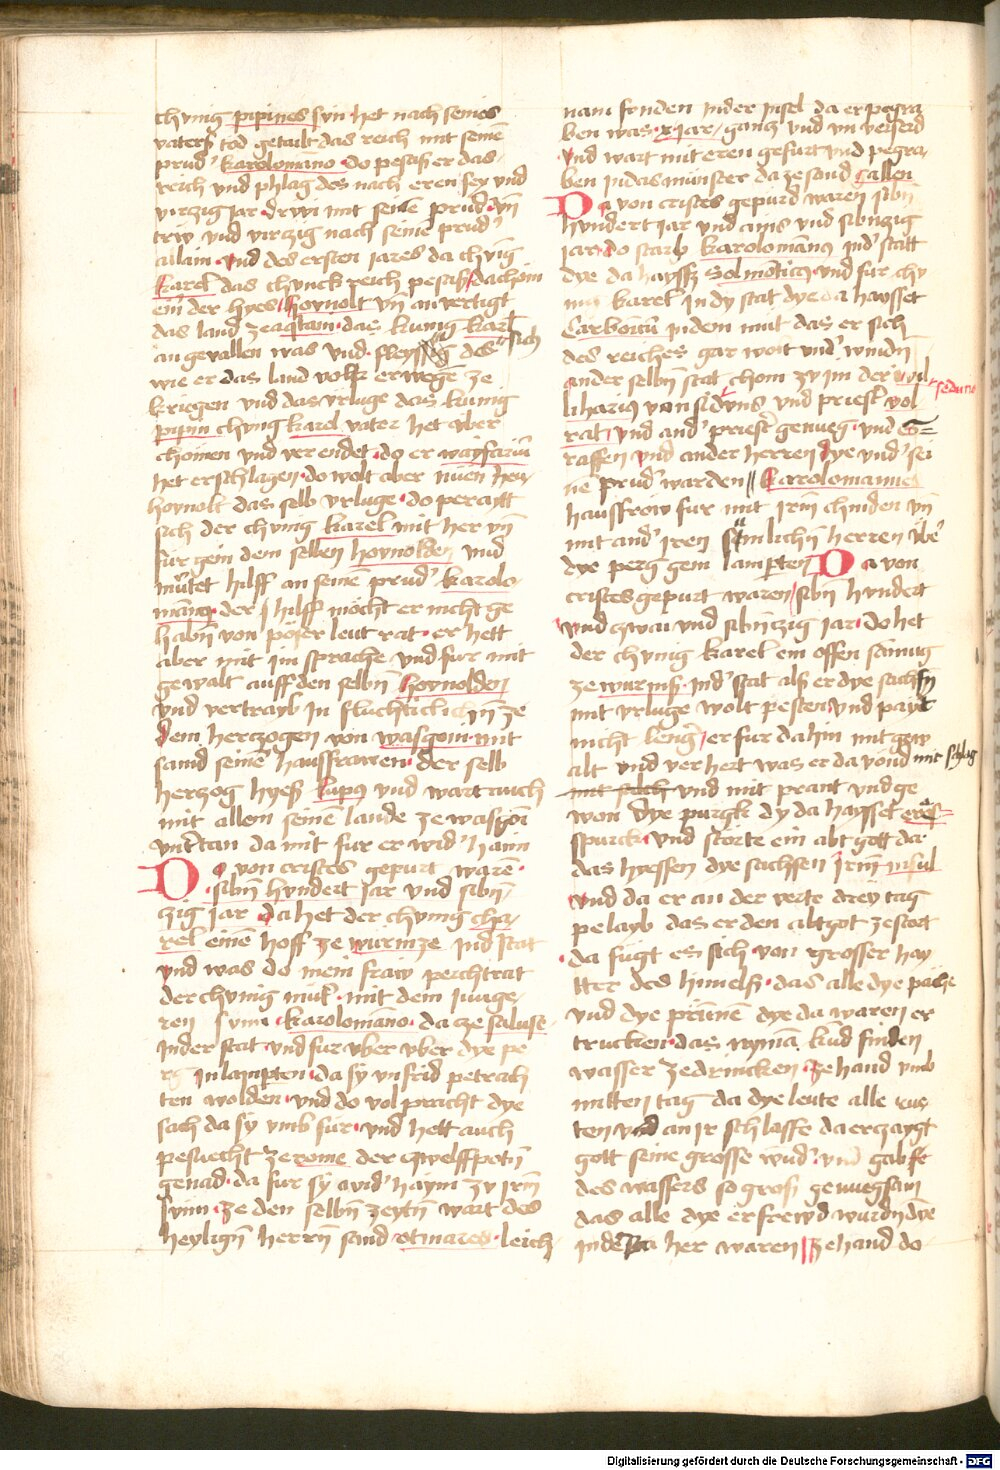 chunig pipines sun het nach seines
vaters tod getailt das reich mit seinē
prud' karolomāno do pesas er das
reich und phlag des nach eren sex und
virzig jar drwi mit seinē prud' vn̄
trw und virczig nach seinē prud'
allain und des ersten jares da chūig
karel das chunck reich pesas da chom
ein der hyes hovnolt vn̄ an vertigt
das land ze aqtam das kunig karl
an gevallen was und fleyssig des sich
wie er das land volk erwegē ze
kriegen und das vrluge das kunig
pipin chunig karel vater het uber
chomen und verendet do er wayfariū
het erschlagen do wolt aber nuen hen
hovnolt das selb vrluge do peraytt
sich der chunig karel mit her vn̄
fur gein dem selben hovnolden und
mutet hilff an seinē prud' karolo
māno der hilff mocht er nicht ge
habn̄ von poser leut rat er hett
aber mit im sprache und fur mit
gewalt auff den selbn̄ hovnolden
und vertrayb in fluchticlichn̄ ze
dem herczogen von wasgoni mit
samd seine haussfrawen der selb
herzog hyess lupus und wart auch
mit allem seine lande ze wasgoni
vntertan da mit fur er wid' haim
Da von cristes gepurt warē
sibn̄ hundert jar und sibn̄
zig jar da het der chunig cha
rel einē hoff ze wurmze ind' stat
und was do mein fraw perchtrat
der chunig mut' mit dem junge
ren sunn karolomāno da cze saluse
inder stat und fur uber uber dye pe
rg in lampten da sy vnfrid petrach
ten wolden und do volpracht dye
sach da sy umb fur und hett auch
pesuecht ze rome der czwelffpotn̄
genad da fur sy avid' haym zu irm
sunn ze den selbn̄ zeytn̄ wart des
heylign̄ herrn̄ sand otmares leich
nam funden inder insel da er pegra
ben was x jar gancz und un verserd
und wart mit eren gefurt und pegra
ben in das munster da ze sand gallen
Da von cristes gepurd waren sibn̄
hundert jar und ains und sibnzig
jar do starb karolomānus ind' statt
dye da haysst Solmoticus und fur chu
nig karel in dy stat dye da haysset
Carbonciū in dem mut das er sich
des reiches gar wolt und' windn̄
ander selbn̄ stat chom zu im der wil
liharius von sidvns und priest' vol
seduno
rat und and' priest' genueg und G=
raffen und ander herren dye und' sei
ne prud' warden Karolomannes
haussfrow fur mit irm̄ chinden vn̄
mit and' iren sumlichn̄ herren ube'
dye perg gem lampten Da von
cristes gepurt waren sibn̄ hundert
und zwai und sibn̄czig jar do het
der chunig karel ein offen samug
ze wurms ind' stat als er dye sachsn̄
mit vrluge wolt pesten und payt
nicht leng' er fur da hin mit gew
alt und verhert was er da vand mit schlag
mit slach und mit prant und ge
won dye purgk dy da haysset eres=
spurck und storte ein abt gott da
das hyessen dye sachsen irm̄ insul
und da er an der verte drey tag
pelayb das er den altgot zestoet
da fugt es sich von grosser hay
tter des himels das alle dye pache
und dye prunnē dye da waren er
trucken das nymā kund finden
wasser ze drincken ze hand umb
mitten tag da dye leute alle rus
ten und an ir schlaffe da erczaygt
gott seine grosse wud' und gab in
des wassers so gros genuegsam
das alle dye erfrewd wurdn̄ dye
inder her waren ze hand do
Digitalisierung gefördert durch die Deutsche Forschungsgemeinschaft - DFG